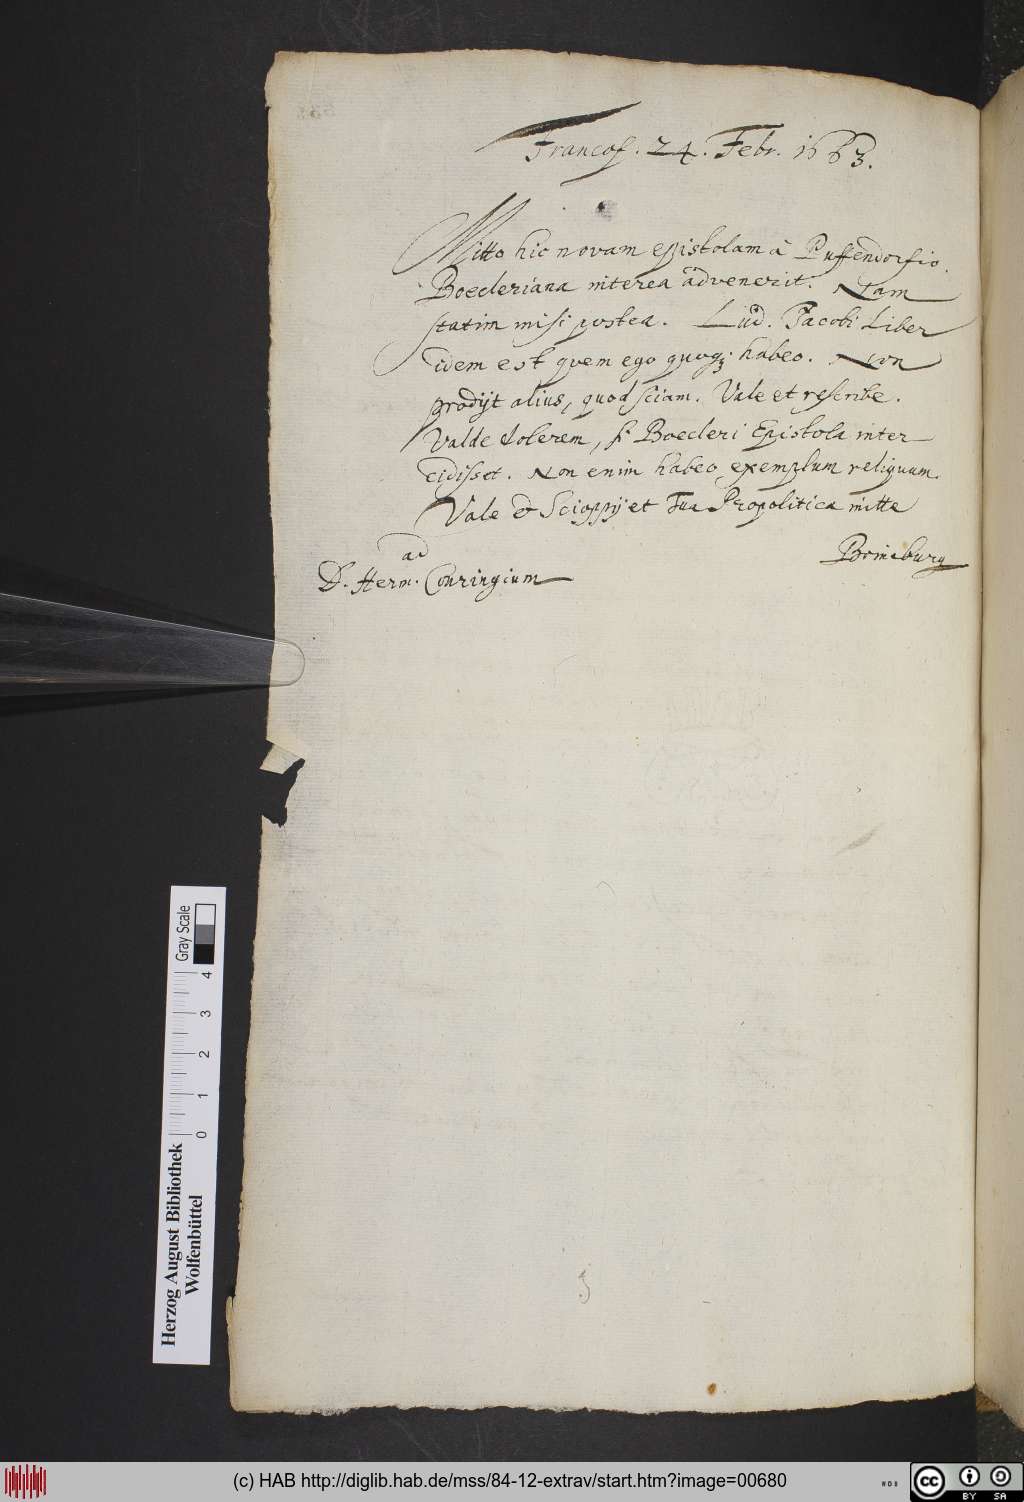 Francof. 24. Febr. 1663.
Mitto hic novam epistolam à Puffendorfio.
Boecleriana interea advenerit. Nam
statim misi postea. Lud. Jacobi Liber
idem est quem ego quoq; habeo. Non
prodijt alius, quod sciam. Vale et rescribe.
Valde dolerem, si Boecleri Epistola inter
cidisset. Non enim habeo exemplum reliquum.
Vale & Scioppij et Tua Propolitica mitte
Boineburg
ad
D. Herm. Conringium
Gray Scale
0 1 2 3 4
Herzog August Bibliothek
Wolfenbüttel
(c) HAB http://diglib.hab.de/mss/84-12-extrav/start.htm?image=00680
cc BY SA